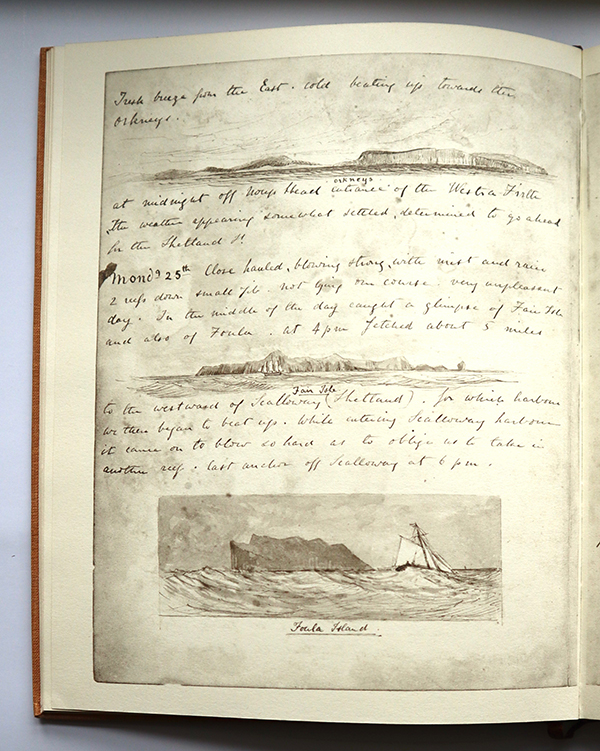 Fresh breeze from the East. cold beating up towards the
Orkneys.
Orkneys
at midnight off Noup Head entrance of the Westra Firth
the weather appearing somewhat settled, determined to go ahead
for the Shetland Is
Mond 25th Close hauled, blowing strong with mist and rain
2 reefs down small jib. not lying our course. very unpleasant
day. In the middle of the day caught a glimpse of Fair Isle
and also of Foula. at 4 pm fetched about 5 miles
Fair Isle
to the westward of Scalloway (Shetland). for which harbour
we then began to beat up. While entering Scalloway harbour
it came on to blow so hard as to oblige us to take in
another reef. cast anchor off Scalloway at 6 pm.
Foula Island.